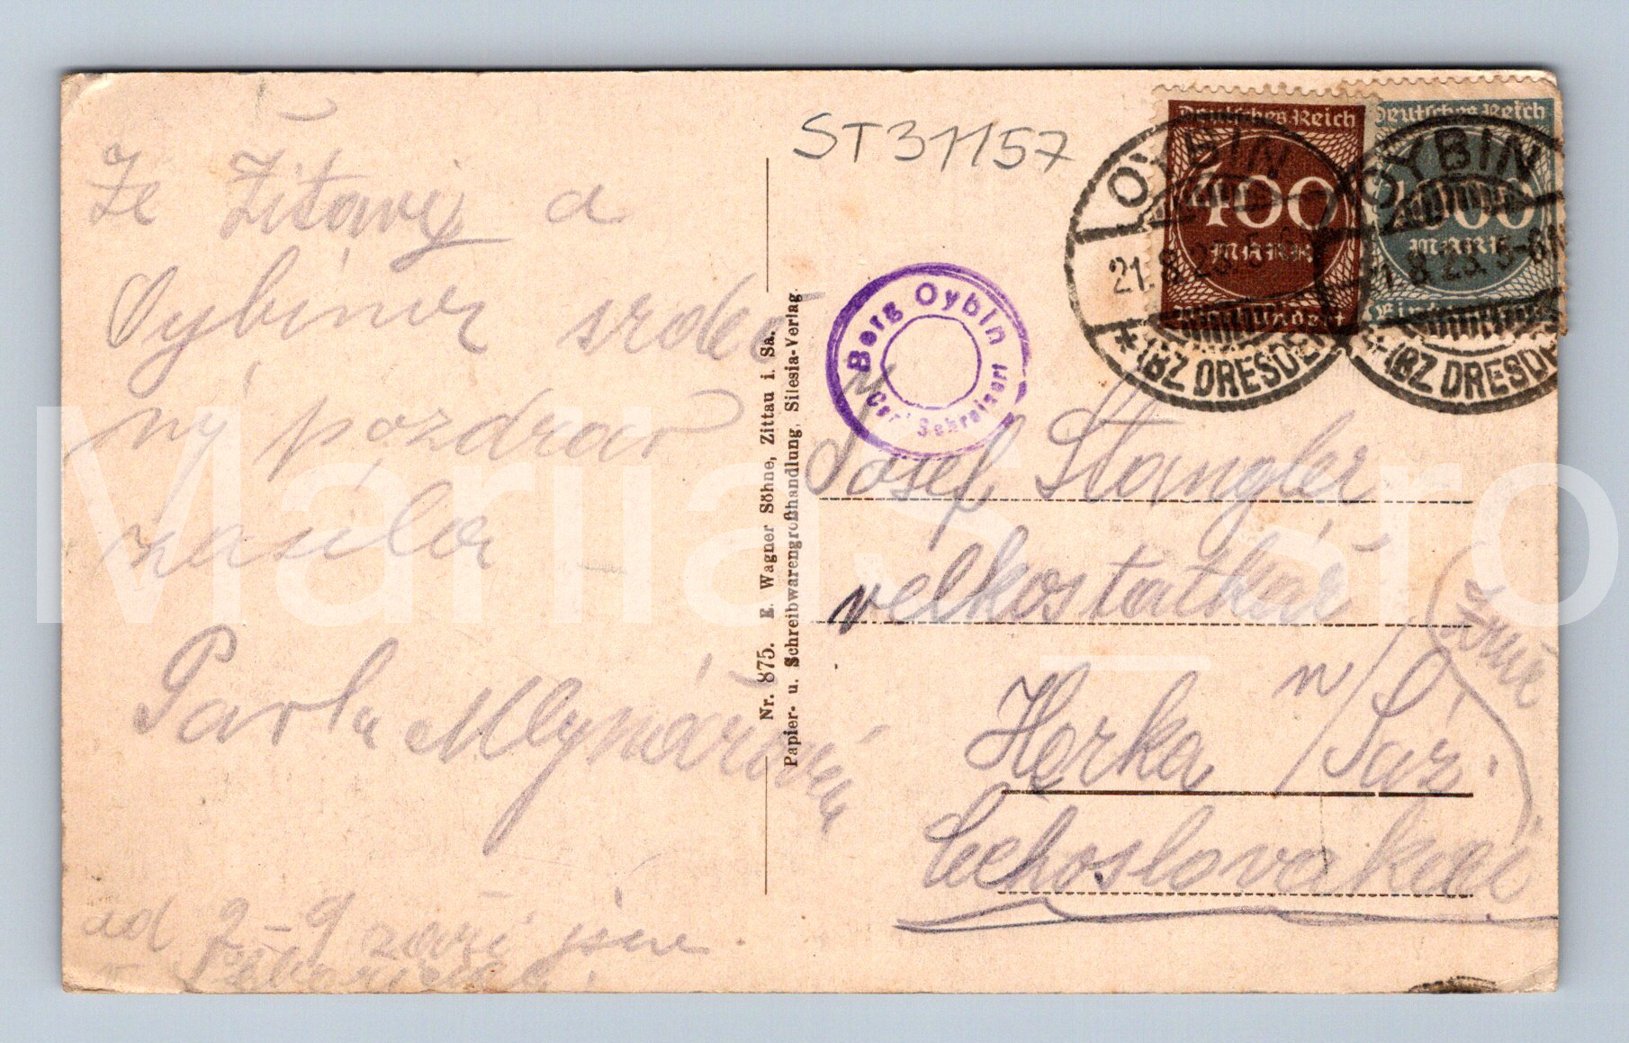 ST31157
Ze Žitavy a
Oybinu srdeč
ný pozdrav
zasílá
Pavla Mlynářová
od 2-9 září jsme
v
Nr. 875. E. Wagner Söhne, Zittau i. Sa.
Papier- u. Schreibwarengroßhandlung, Silesia-Verlag.
Berg Oybin
Deutsches Reich
400
MARK
Vierhundert
Deutsches Reich
OYBIN
21.8.23. 5-6N
* (BZ DRESDEN
OYBIN
21.8.23. 5-6N
* (BZ DRESDEN
Josef Stangler
velkostatkář
Horka n/Sáz.
Čechoslovakei
MariiaS_sro